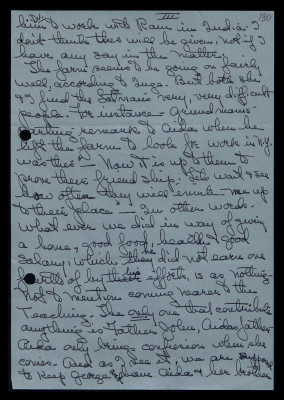 III
130
him to work with Ram in India. I
don't think this will be given, not if I
have any say in the matter.
The farm seems to be going on fairly
well, according to Inga. But both she
& I find the Latvians very, very difficult
people. For instance - Grundmans
parting remark to Aida when he
left the farm to look for work in N.Y.
was this - Now it is up to them to
prove their friendship. Lets wait & see
how often they will invite me up
to their place - In other words -
what ever we did in way of giving
a home, good food, health & good
Salary, which they did not earn one
of by their efforts, is as nothing.
Not to mention coming nearer to the
Teaching. The only one that contributes
anything is Father John, Aidas father
Aida only brings confusion when she
comes. And as I see it, we are
to keep George, Aida & her brother